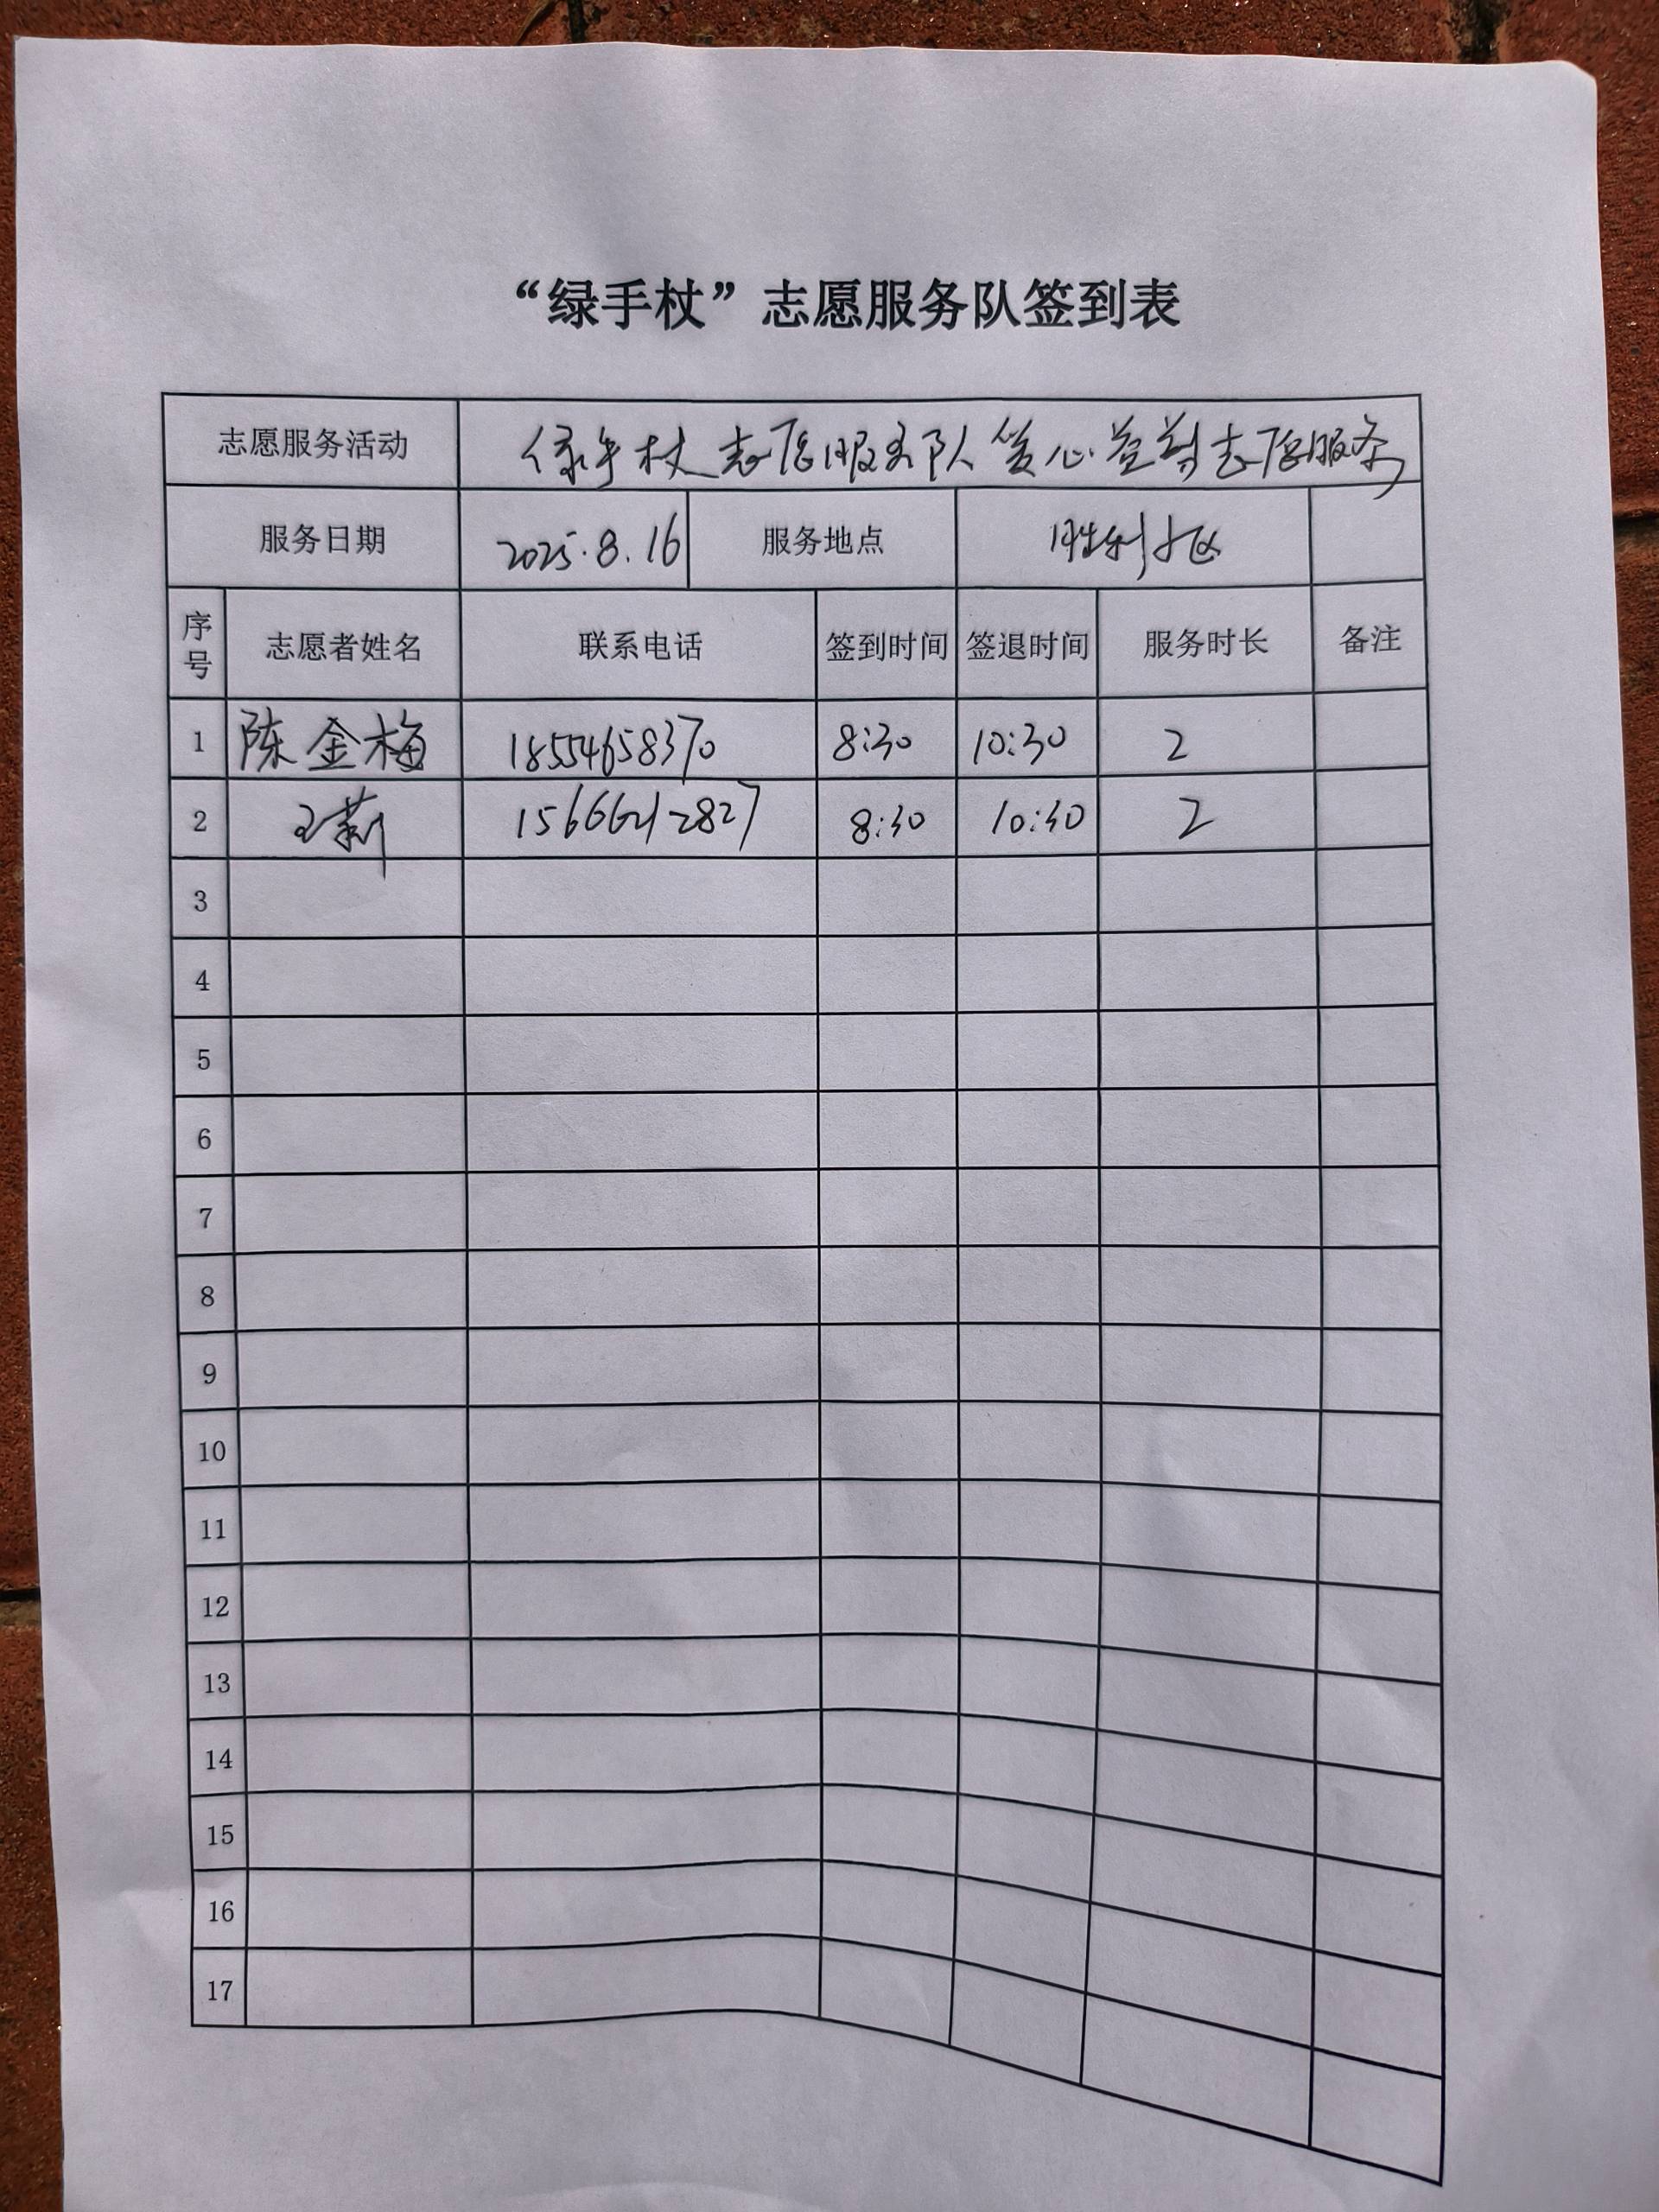 “绿手杖”志愿服务队签到表
志愿服务活动 绿手杖志愿服务队爱心益剪志愿服务
服务日期 2025.8.16 服务地点 胜利小区
序号 志愿者姓名 联系电话 签到时间 签退时间 服务时长 备注
1 陈金梅 18554658370 8:30 10:30 2
2 王莉 15666212827 8:30 10:30 2
3
4
5
6
7
8
9
10
11
12
13
14
15
16
17